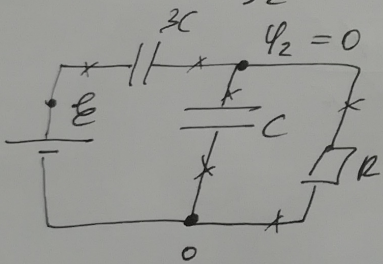 3C
φ₂ = 0
ℰ
C
R
0